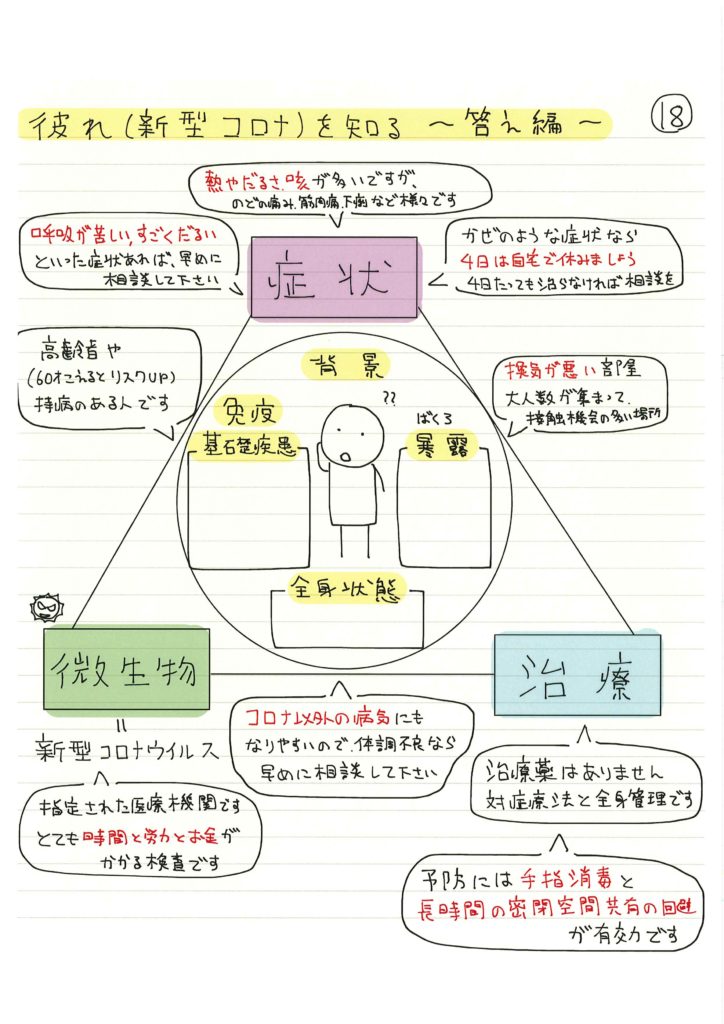 彼れ(新型コロナ)を知る ～答え編～
⑱
熱やだるさ、咳が多いですが、
のどの痛み、筋肉痛、下痢など様々です
呼吸が苦しい,すごくだるい
といった症状あれば、早めに
相談して下さい
症状
かぜのような症状なら
4日は自宅で休みましょう
4日たっても治らなければ相談を
高齢者や
(60才こえるとリスクUP)
持病のある人です
背景
免疫
基礎疾患
??
ばくろ
暴露
換気が悪い部屋
大人数が集まって、
接触機会の多い場所
全身状態
微生物
=
新型コロナウイルス
治療
コロナ以外の病気にも
なりやすいので、体調不良なら
早めに相談して下さい
治療薬はありません
対症療法と全身管理です
指定された医療機関です
とても時間と労力とお金が
かかる検査です
予防には手指消毒と
長時間の密閉空間共有の回避
が有効です